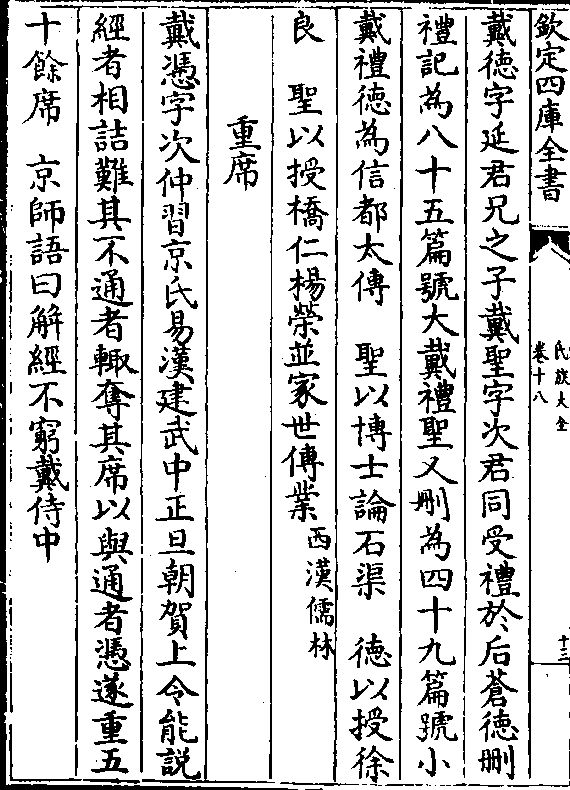 欽定四庫全書
氏族大全
卷十八
十三
戴德字延君兄之子戴聖字次君同受禮於后蒼德刪
禮記為八十五篇號大戴禮聖又刪為四十九篇號小
戴禮德為信都太傅　聖以博士論石渠　德以授徐
良　聖以授橋仁楊榮並家世傳業西漢儒林
重席
戴憑字次仲習京氏易漢建武中正旦朝賀上令能說
經者相詰難其不通者輙奪其席以與通者憑遂重五
十餘席　京師語曰解經不窮戴侍中